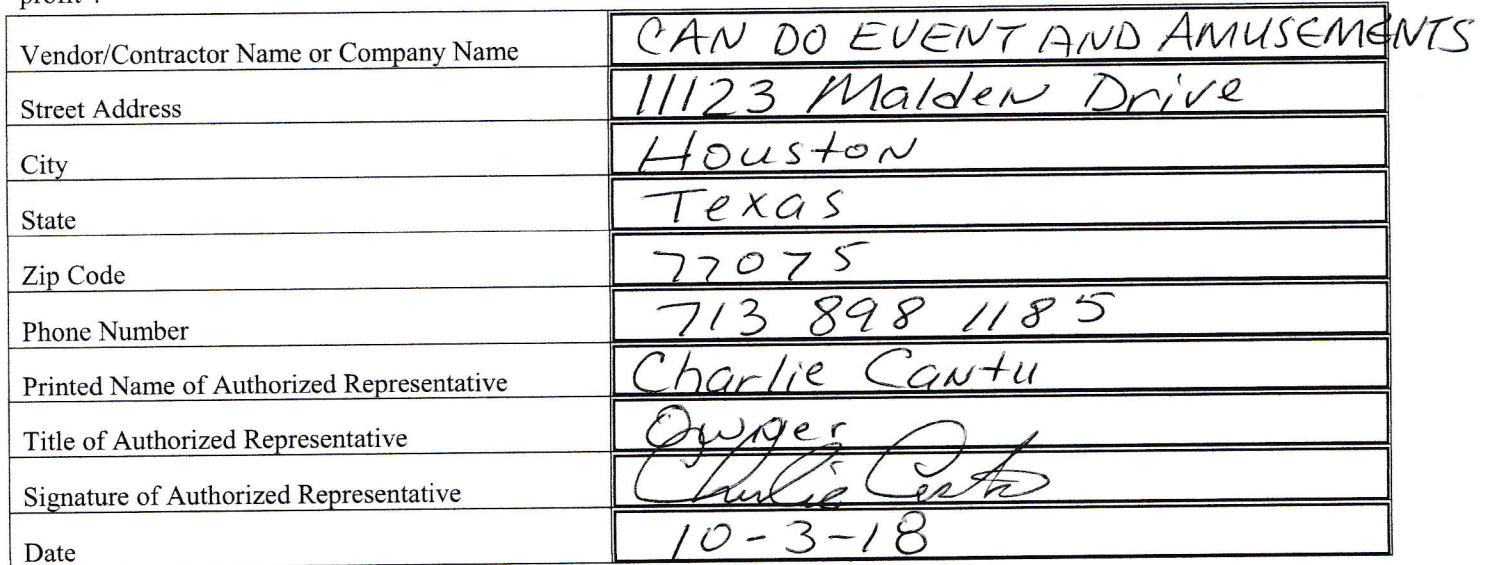 profit".
Vendor/Contractor Name or Company Name CAN DO EVENT AND AMUSEMENTS
Street Address 11123 Malden Drive
City Houston
State Texas
Zip Code 77075
Phone Number 713 898 1185
Printed Name of Authorized Representative Charlie Cantu
Title of Authorized Representative Owner
Signature of Authorized Representative Charlie Cantu
Date 10-3-18